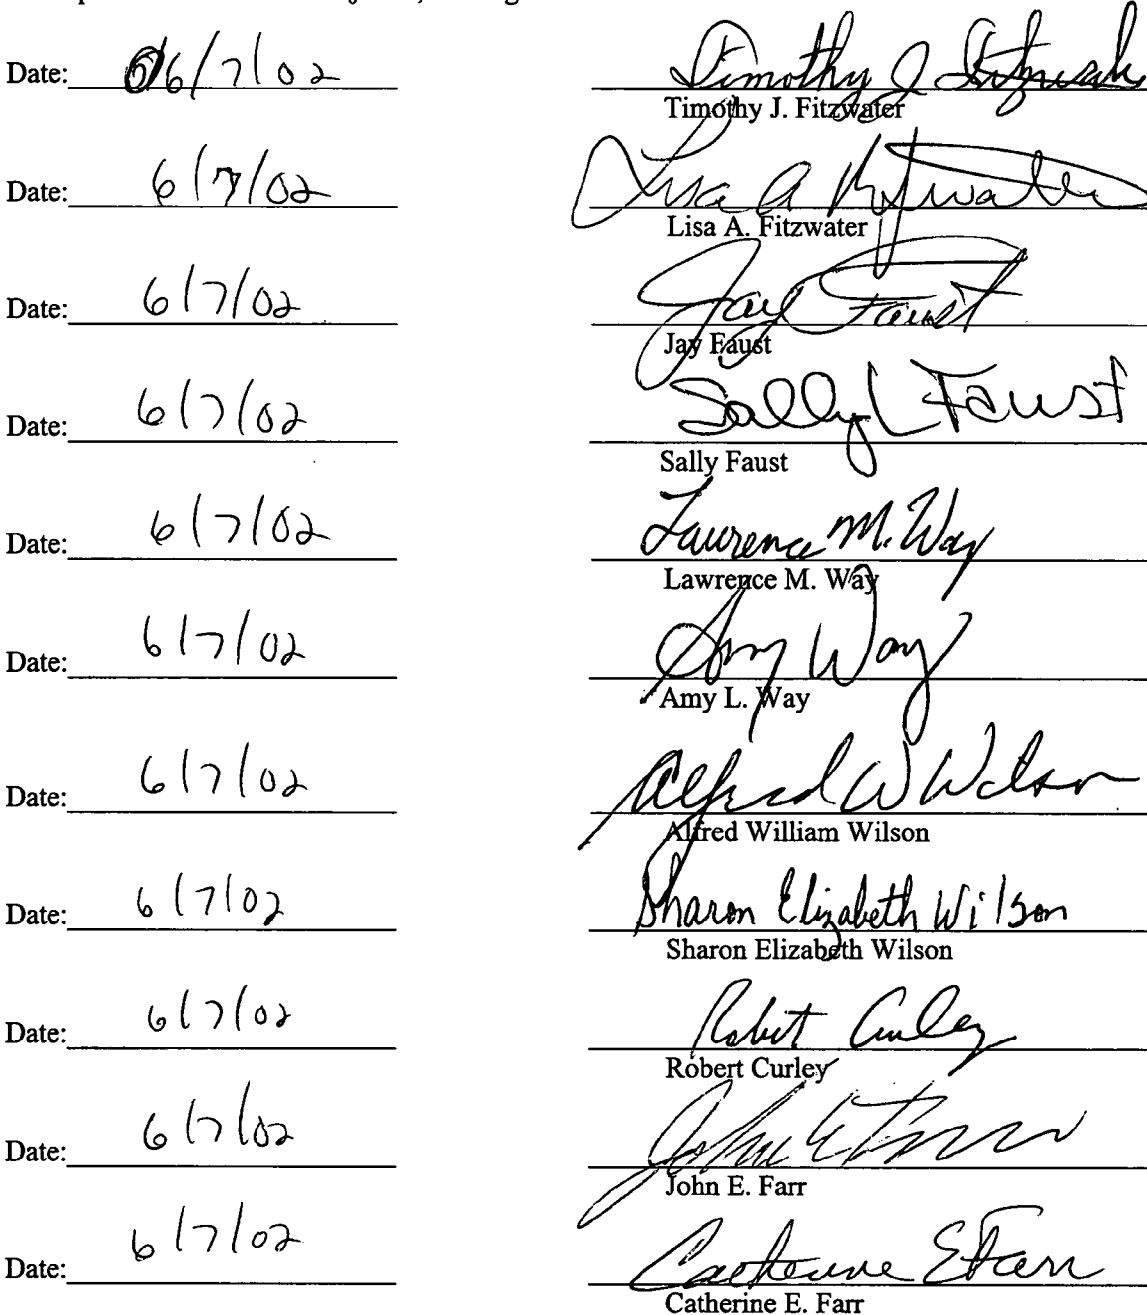 Date: 06/7/02 Timothy J Fitzwater
Timothy J. Fitzwater
Date: 6/7/02 Lisa A Fitzwater
Lisa A. Fitzwater
Date: 6/7/02 Jay Faust
Jay Faust
Date: 6/7/02 Sally L Faust
Sally Faust
Date: 6/7/02 Lawrence M. Way
Lawrence M. Way
Date: 6/7/02 Amy Way
Amy L. Way
Date: 6/7/02 Alfred W Wilson
Alfred William Wilson
Date: 6/7/02 Sharon Elizabeth Wilson
Sharon Elizabeth Wilson
Date: 6/7/02 Robert Curley
Robert Curley
Date: 6/7/02 John E Farr
John E. Farr
Date: 6/7/02 Catherine E Farr
Catherine E. Farr